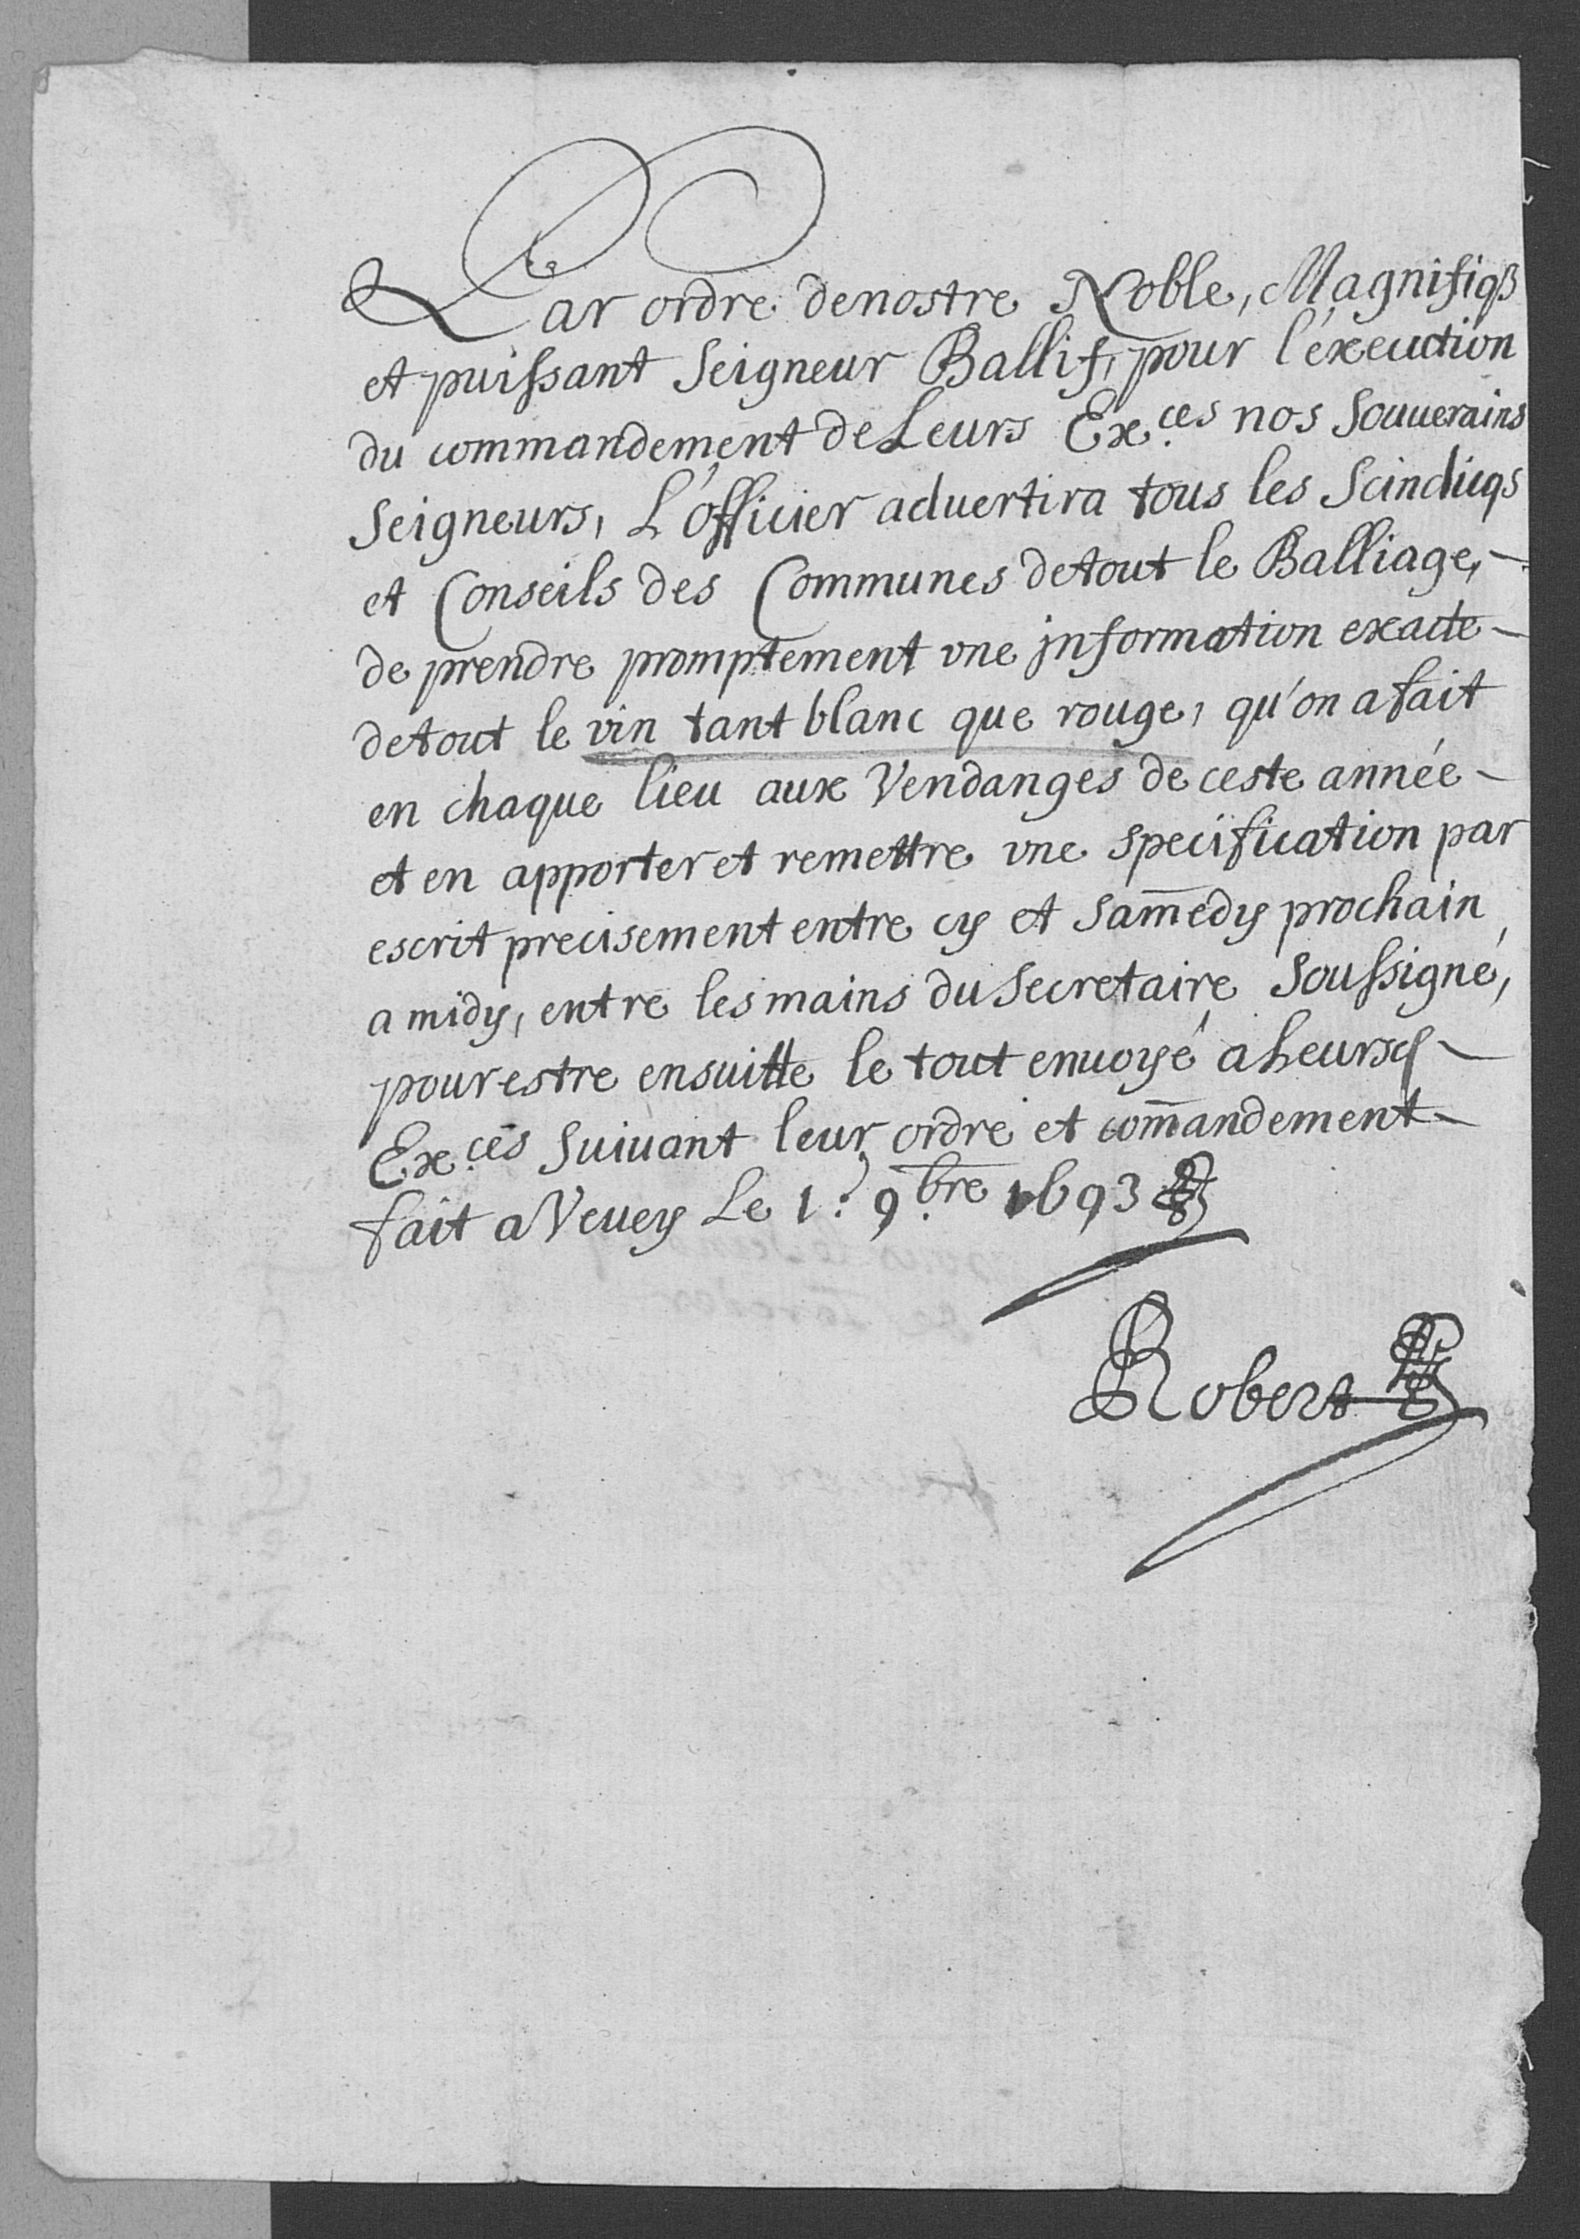 Par ordre de nostre Noble, Magnifiqꝫ
et puissant Seigneur Ballif, pour l'éxecution
du commandement de Leurs Ex.ces nos Souuerains
Seigneurs, L'officier aduertira tous les Scindicqs
et Conseils des Communes de tout le Balliage,
de prendre promptement vne jnformation exacte
de tout le vin tant blanc que rouge, qu'on a fait
en chaque lieu aux Vendanges de ceste année
et en apporter et remettre vne specification par
escrit precisement entre cy et sam̄edy prochain
a midy, entre les mains du Secretaire soussigné,
pour estre ensuitte le tout enuoyé a Leursd
Ex.ces Suiuant leur ordre et com̄andement
fait a Veuey Le 1.r 9.bre 1693
Robert